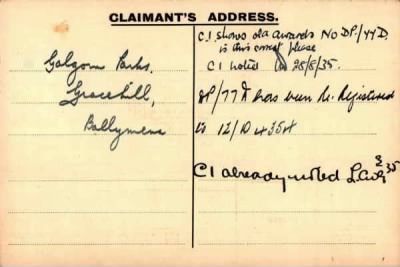 CLAIMANT'S ADDRESS.
Galgorm Parks,
Gracehill,
Ballymena
C.1 shows old awards No DP/77D.
is this correct please
C1 noted 28/8/35.
DP/77D has been Re. Registered
to 12/D
C1 already noted